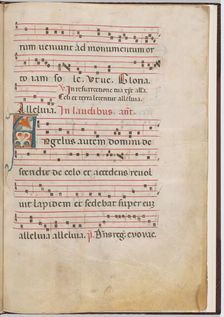 rum veniunt ad monumentum or
to iam sole. Evovae. Gloria.
℣. In resurrectione tua xpe alla.
Celi et terra letentur alleluia.
Alleluia. In laudibus. ant.
Angelus autem domini de
scendit de celo et accedens revol
vit lapidem et sedebat super eum
alleluia alleluia. p. Dns reg. evovae.